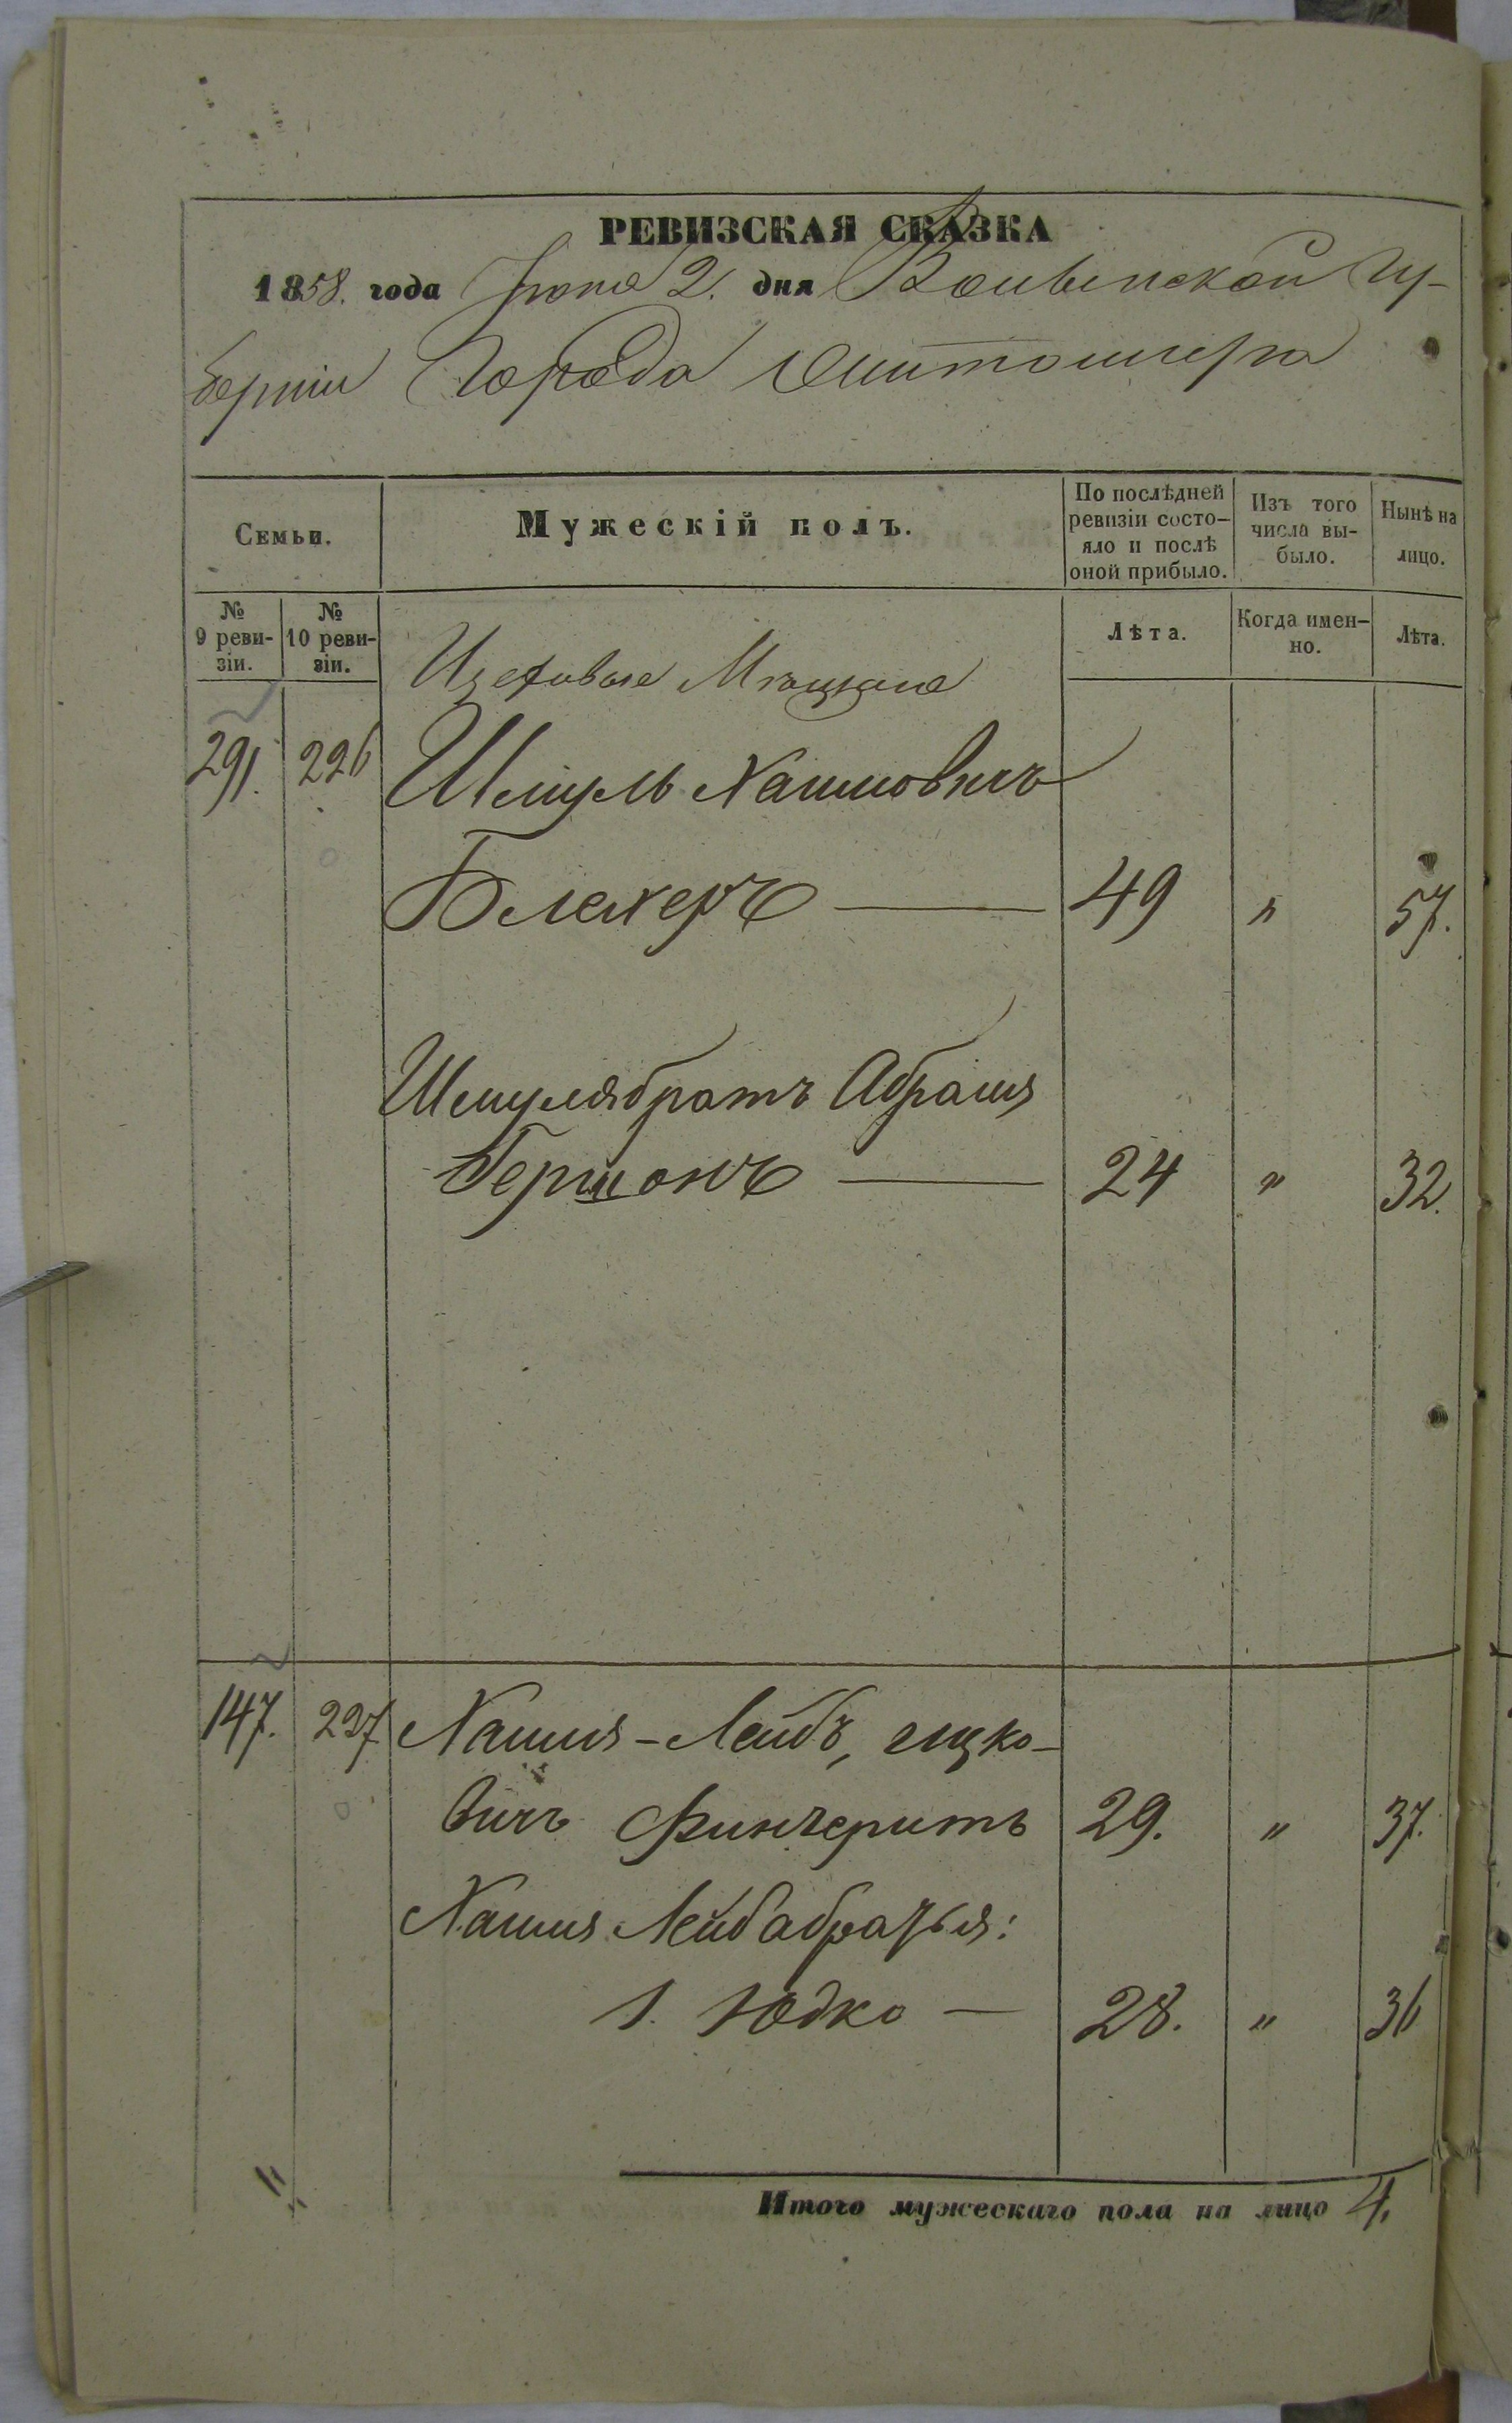 РЕВИЗСКАЯ СКАЗКА
1858. года Іюня 2. дня Волынской Гу-
берніи Города Житомира
Семьи.
Мужескій полъ.
По послѣдней
ревизіи состо-
яло и послѣ
оной прибыло.
Изъ того
числа вы-
было.
Нынѣ на
лицо.
№
9 реви-
зіи.
№
10 реви-
зіи.
Лѣта.
Когда имен-
но.
Лѣта.
Мѣщане
291. 226 Шмуль Хаимовичъ
Блехеръ — 49 " 57.
Шмуля братъ Абрамъ
Гершонъ — 24 " 32.
147. 227 Хаимъ-Лейбъ, Ицко-
вичъ 29. " 37.
Хаимъ Лейба братья:
1. Юдко — 28. " 36
Итого мужескаго пола на лицо 4.